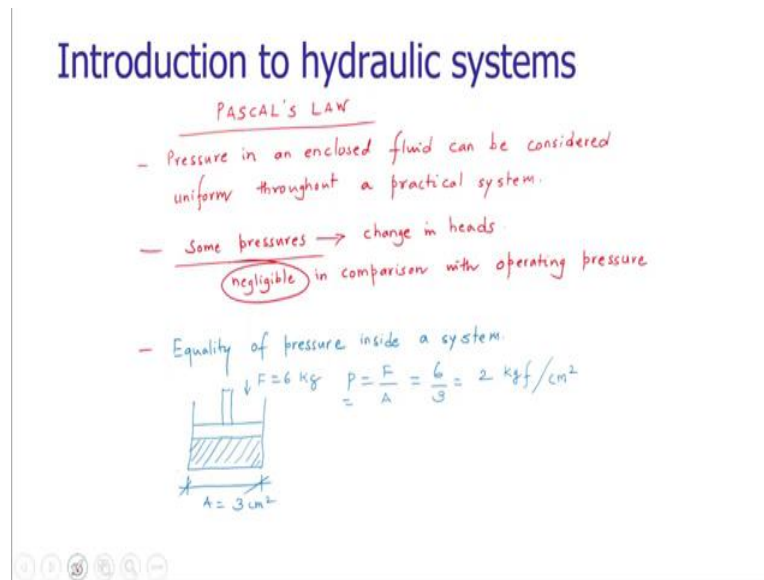 Introduction to hydraulic systems
PASCAL'S LAW
- Pressure in an enclosed fluid can be considered
uniform throughout a practical system.
- Some pressures → change in heads.
negligible in comparison with operating pressure
- Equality of pressure inside a system.
↓ F = 6 kg P = F/A = 6/3 = 2 kgf/cm²
A = 3 cm²